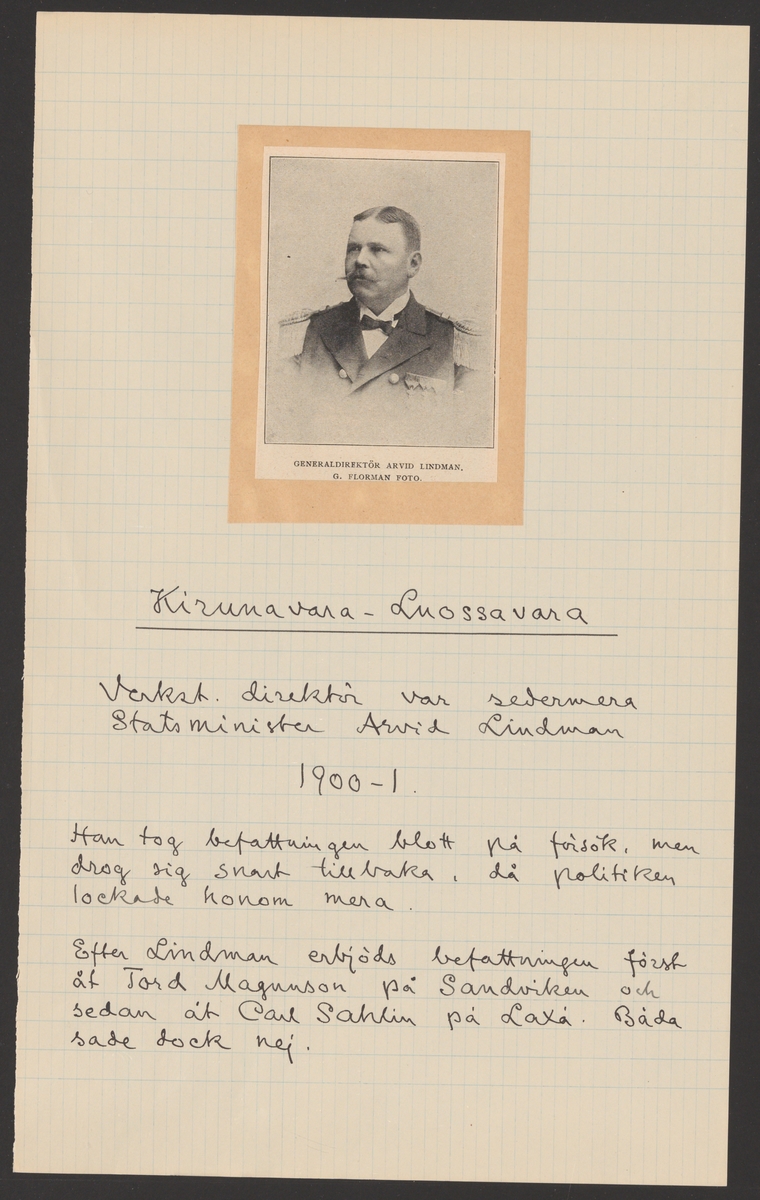 GENERALDIREKTÖR ARVID LINDMAN,
G. FLORMAN FOTO.
Kirunavara - Luossavara
Verkst. direktör var sedermera
Statsminister Arvid Lindman
1900-1.
Han tog befattningen blott på försök, men
drog sig snart tillbaka, då politiken
lockade honom mera.
Efter Lindman erbjöds befattningen först
åt Tord Magnuson på Sandviken och
sedan åt Carl Sahlin på Laxå. Båda
sade dock nej.